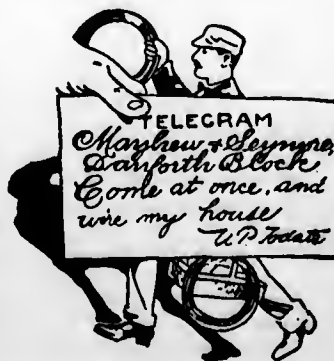 TELEGRAM
Mayhew & Seymore,
Danforth Block.
Come at once, and
wire my house
U.P. Todate